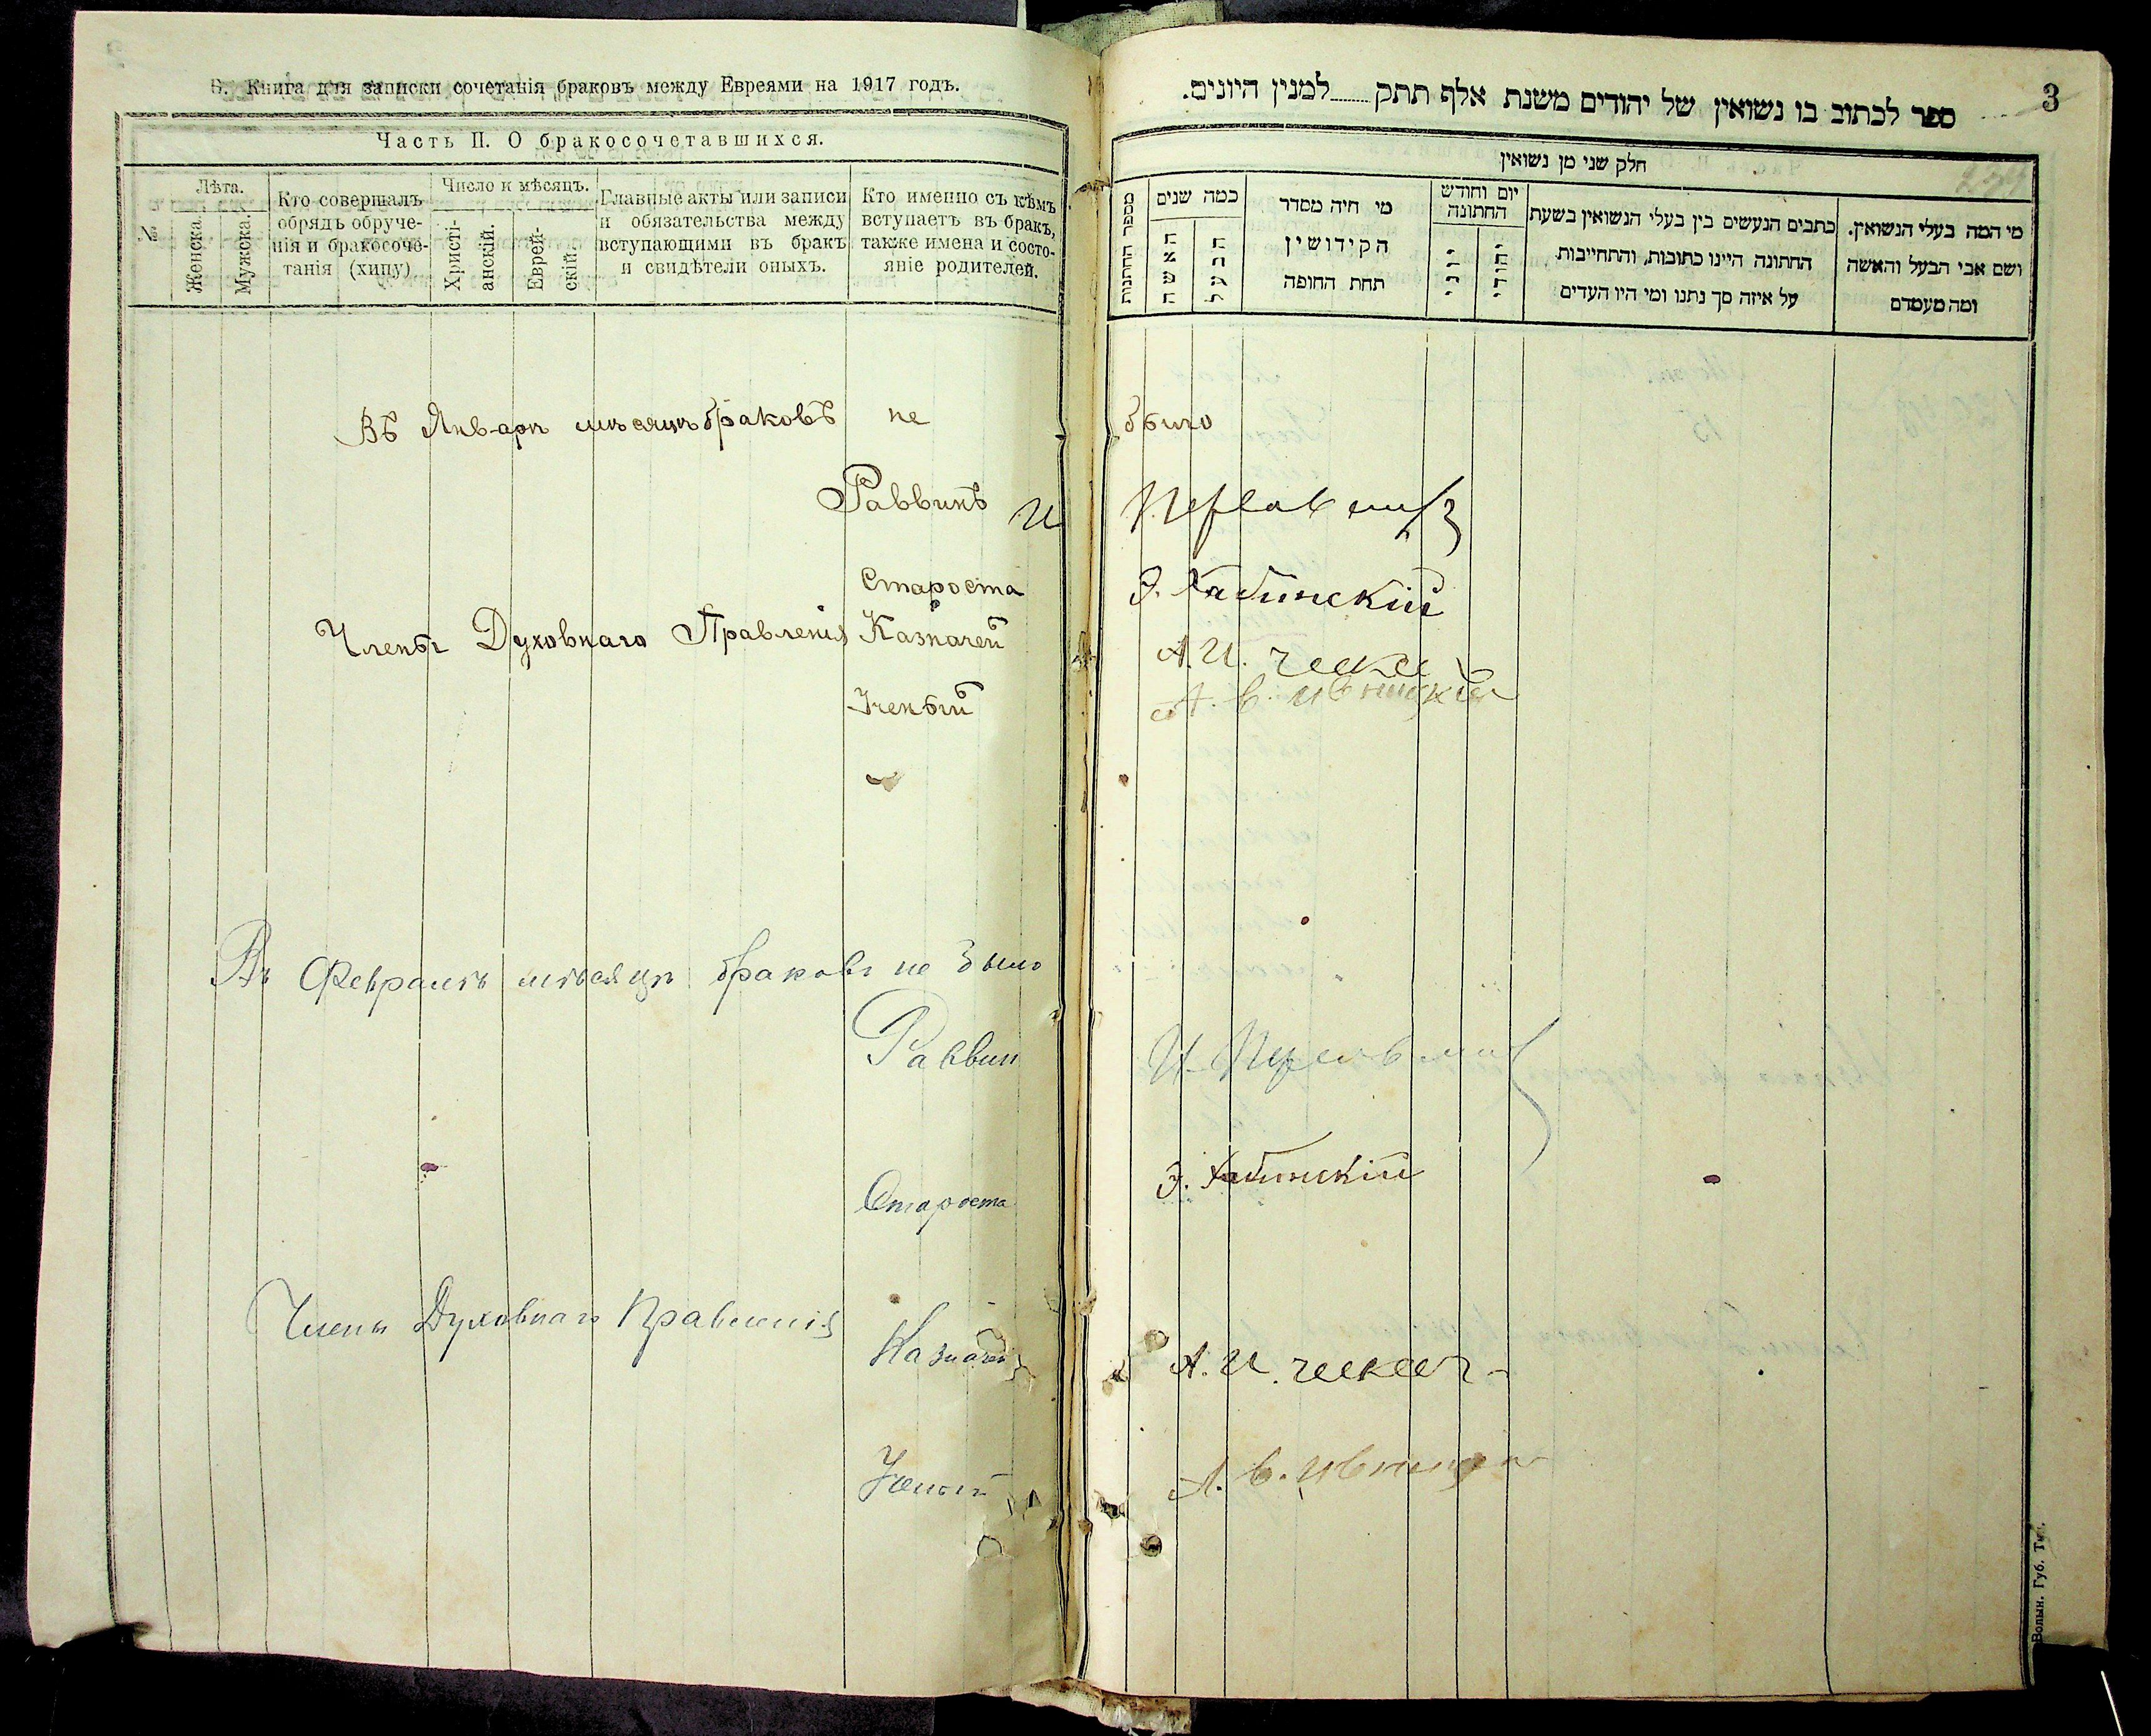 Б. Книга для записки сочетанія браковъ между Евреями на 1917 годъ.
Часть II. О бракосочетавшихся.
№
Лѣта.
Женска.
Мужска.
Кто совершалъ
обрядъ обруче-
нія и бракосоче-
танія (хипу)
Число и мѣсяцъ.
Христі-
анскій.
Еврей-
скій.
Главные акты или записи
и обязательства между
вступающими въ бракъ
и свидѣтели оныхъ.
Кто именно съ кѣмъ
вступаетъ въ бракъ,
также имена и состо-
яніе родителей.
3
ספר לכתוב בו נשואין של יהודים משנת אלף תתק למנין היונים.
חלק שני מן נשואין
מספר החתונות
כמה שנים
האשה
הבעל
מי היה מסדר
הקידושין
תחת החופה
יום וחודש
החתונה
יוני
יהודי
כתבים הנעשים בין בעלי הנשואין בשעת
החתונה היינו כתובות, והתחייבות
על איזה סך נתנו ומי היו העדים
מי המה בעלי הנשואין.
ושם אבי הבעל והאשה
ומה מעמדם
Въ Январѣ мѣсяцѣ браковъ не было
Раввинъ И
Староста Э. Хабинскій
Члены Духовнаго Правленія Казначей А. И.
Ученый А. В.
Въ Февралѣ мѣсяцѣ браковъ не было
Раввин И.
Староста Э. Хабинскій
Члены Духовнаго Правленія
Казначей А. И.
Ученый А. В.
Волын. Губ. Тип.